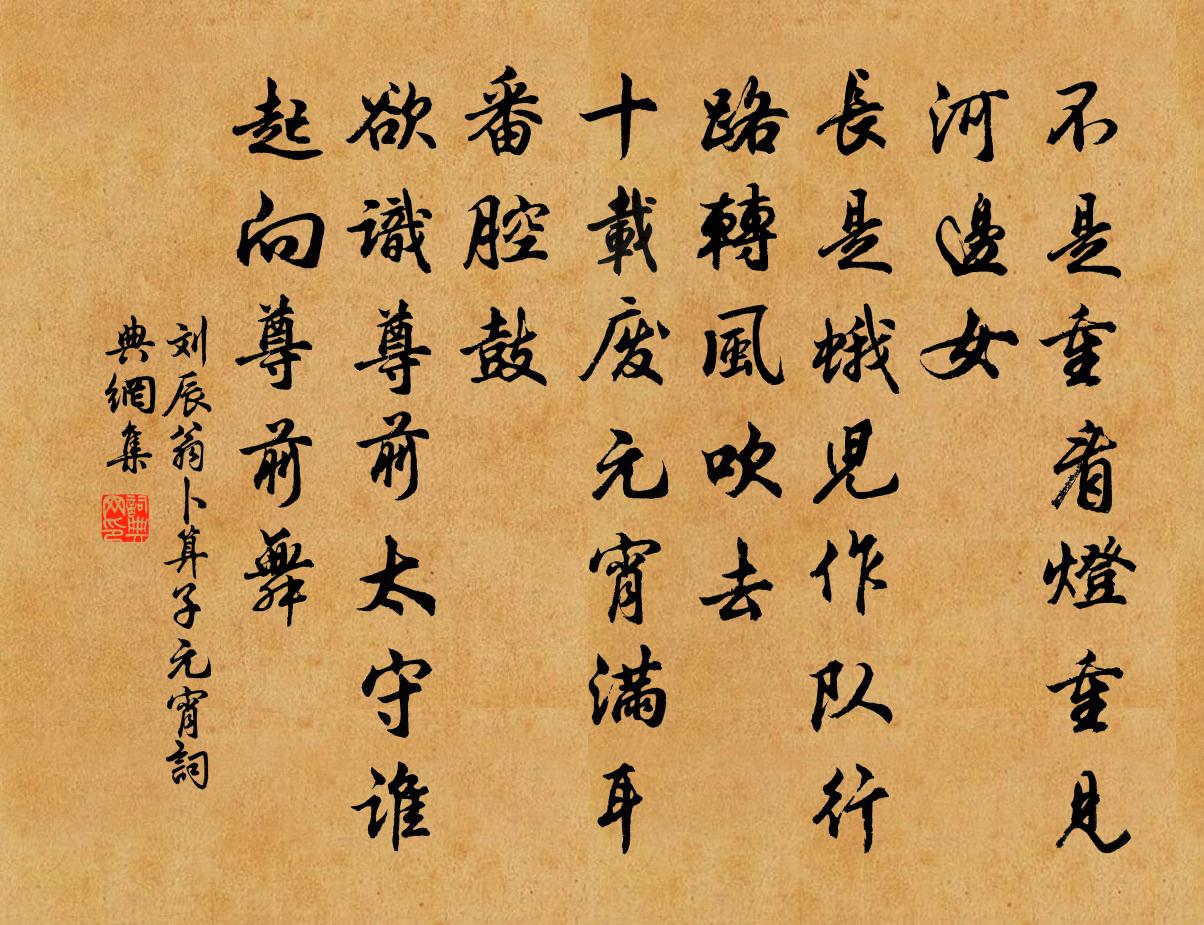 不是重看燈重見
河邊女
長是蛾児作队行
路轉風吹去
十載废元宵滿耳
番腔鼓
欲識尊前太守谁
起向尊前舞
刘辰翁卜算子元宵詞
典網集
詞典
网印